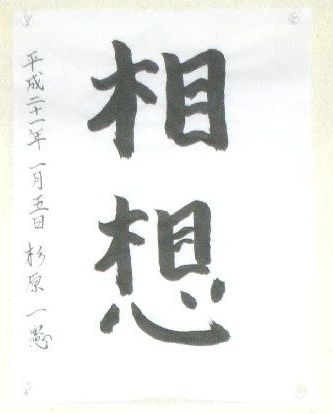 相想
平成二十一年 一月五日 杉原 一